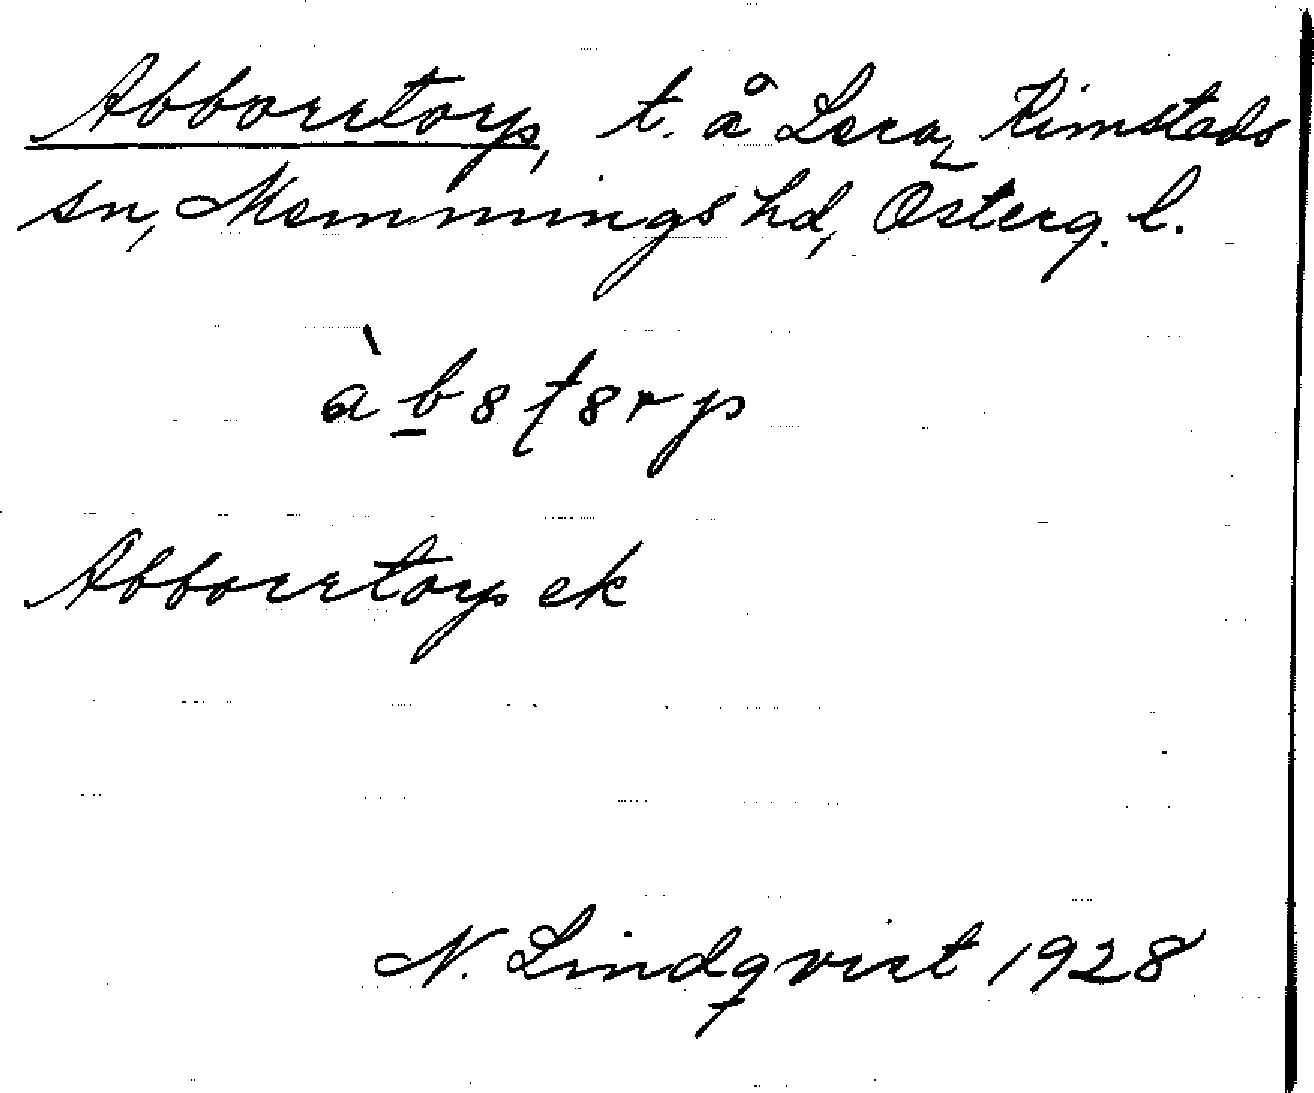 Abborrtorp, t. å Lera, Kimstads
sn, Memmings hd, Österg. l.
àb8t8rp
Abborrtorp ek
N. Lindqvist 1928